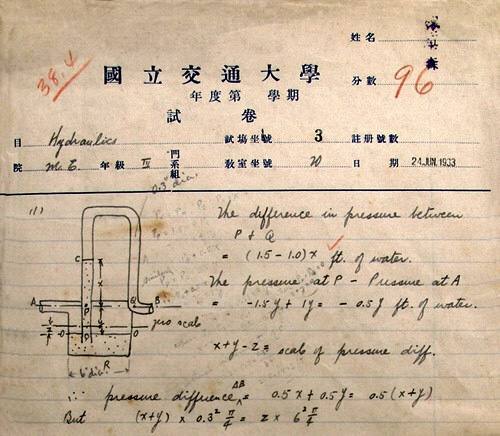 姓名
38.4
國立交通大學
分數 96
年度第 學期
試卷
目 Hydraulics 試場坐號 3 註册號數
院 M.E. 年級 IV 門系組 教室坐號 20 日期 24 JUN. 1933
0.3" dia.
(1) The difference in pressure between
P & Q
= (1.5 - 1.0) x ft. of water.
The pressure at P - Pressure at A
= -1.5y + 1y = -0.5y ft. of water.
C
A P Q B
zero scale
O O
x + y - z = scale of pressure diff.
R
6" dia.
∴ pressure difference AB = 0.5x + 0.5y = 0.5(x+y)
But (x+y) x 0.3² π/4 = z x 6² π/4